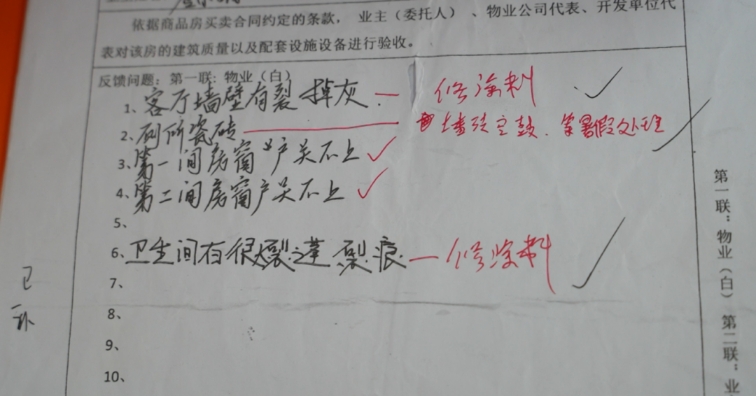 依据商品房买卖合同约定的条款，业主（委托人）、物业公司代表、开发单位代
表对该房的建筑质量以及配套设施设备进行验收。
反馈问题：第一联：物业（白）
1、客厅墙壁有裂 掉灰 — 修涂料
2、厕所瓷砖 — 墙砖空鼓、等暑假处理
3、第一间房窗户关不上
4、第二间房窗户关不上
5、
6、卫生间有很 裂缝 裂痕 — 修涂料
7、
8、
9、
10、
第一联：物业（白）第二联：业